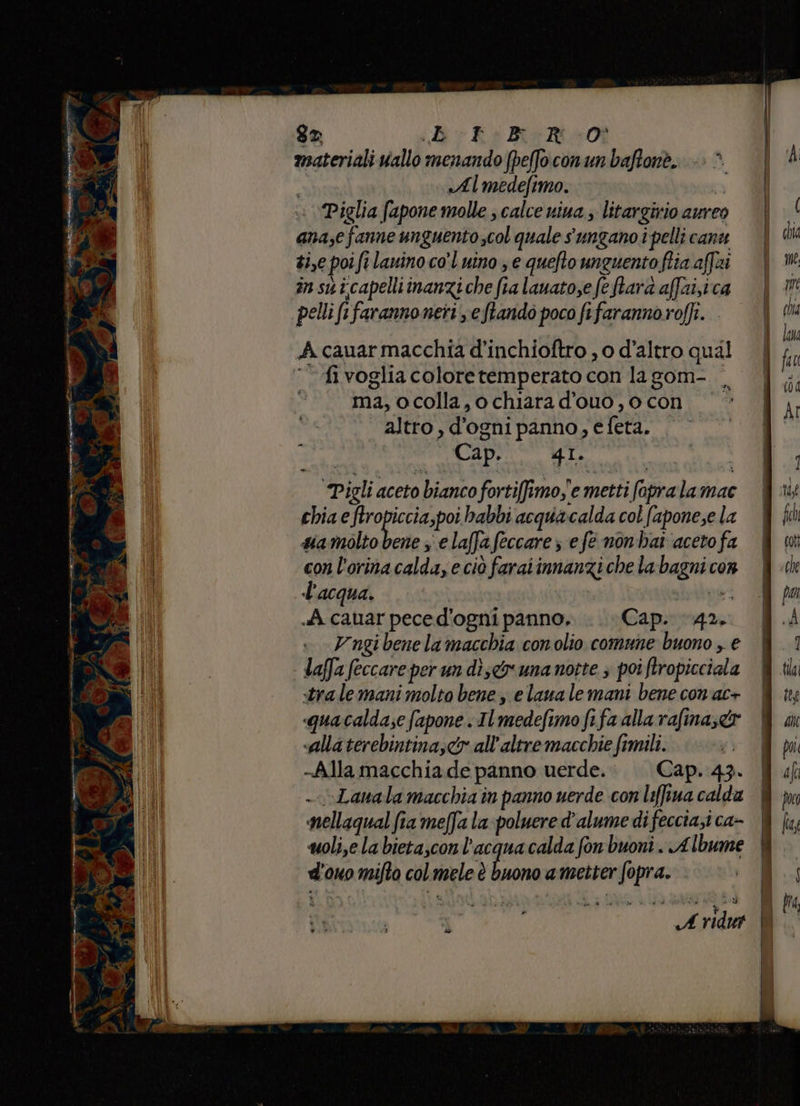 82 L I B R O
materiali uallo menando ſpeſſo con un baſtone.
Al medeſimo.
Piglia ſapone molle, calce uiua, litargirio aureo
ana, e fanne unguento, col quale s'ungano i pelli canu
ti, e poi ſi lauino co'l uino, e queſto unguento ſtia aſſai
in sù i capelli inanzi che ſia lauato, e ſe ſtarà aſſai, i ca
pelli ſi faranno neri, e ſtando poco ſi faranno roſſi.
A cauar macchia d'inchioſtro, o d'altro qual
ſi voglia colore temperato con la gom-
ma, o colla, o chiara d'ouo, o con
altro, d'ogni panno, e ſeta.
Cap. 41.
Pigli aceto bianco fortiſſimo, e metti ſopra la mac
chia e ſtropiccia, poi habbi acqua calda col ſapone, e la
ua molto bene, e laſſa ſeccare, e ſe non hai aceto fa
con l'orina calda, e ciò farai innanzi che la bagni con
l'acqua.
A cauar pece d'ogni panno. Cap. 42.
Vngi bene la macchia con olio comune buono, e
laſſa ſeccare per un dì, & una notte, poi ſtropicciala
tra le mani molto bene, e laua le mani bene con ac-
qua calda, e ſapone. Il medeſimo ſi fa alla raſina, &
alla terebintina, & all'altre macchie ſimili.
Alla macchia de panno uerde. Cap. 43.
Laua la macchia in panno uerde con liſſiua calda
nellaqual ſia meſſa la poluere d'alume di feccia, i ca-
uoli, e la bieta, con l'acqua calda ſon buoni. Albume
d'ouo miſto col mele è buono a metter ſopra.
A ridur